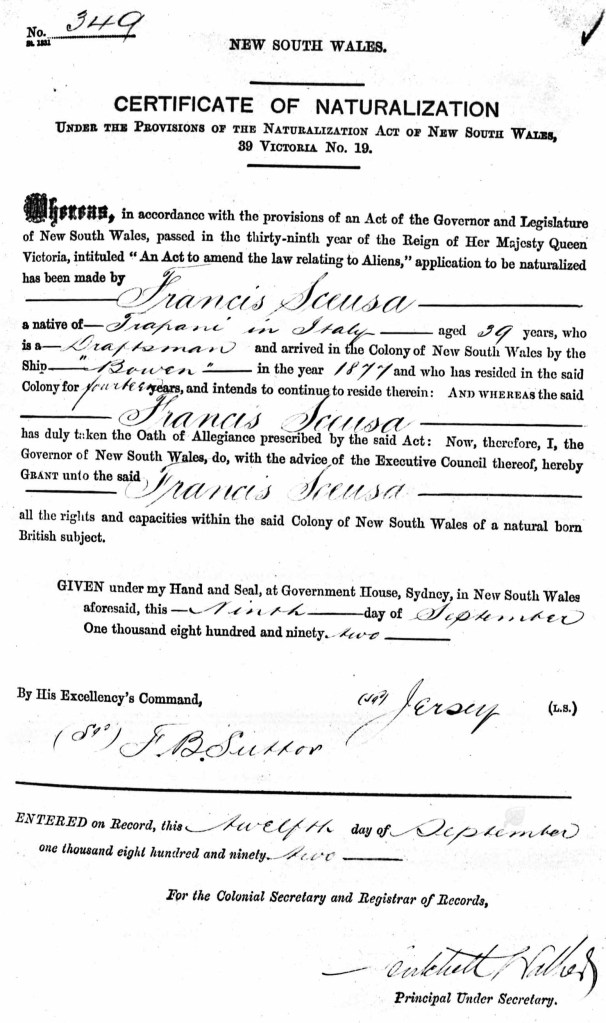 No. 349
NEW SOUTH WALES.
CERTIFICATE OF NATURALIZATION
UNDER THE PROVISIONS OF THE NATURALIZATION ACT OF NEW SOUTH WALES,
39 VICTORIA No. 19.
Whereas, in accordance with the provisions of an Act of the Governor and Legislature
of New South Wales, passed in the thirty-ninth year of the Reign of Her Majesty Queen
Victoria, intituled "An Act to amend the law relating to Aliens," application to be naturalized
has been made by
Francis Sceusa
a native of Trapani in Italy aged 39 years, who
is a Draftsman and arrived in the Colony of New South Wales by the
Ship "Bowen" in the year 1877 and who has resided in the said
Colony for fourteen years, and intends to continue to reside therein: AND WHEREAS the said
Francis Sceusa
has duly taken the Oath of Allegiance prescribed by the said Act: Now, therefore, I, the
Governor of New South Wales, do, with the advice of the Executive Council thereof, hereby
GRANT unto the said Francis Sceusa
all the rights and capacities within the said Colony of New South Wales of a natural born
British subject.
GIVEN under my Hand and Seal, at Government House, Sydney, in New South Wales
aforesaid, this Ninth day of September
One thousand eight hundred and ninety two
By His Excellency's Command, (sgd) Jersey (L.S.)
(sgd) F. B. Suttor
ENTERED on Record, this twelfth day of September
one thousand eight hundred and ninety two
For the Colonial Secretary and Registrar of Records,
Critchett Walker
Principal Under Secretary.